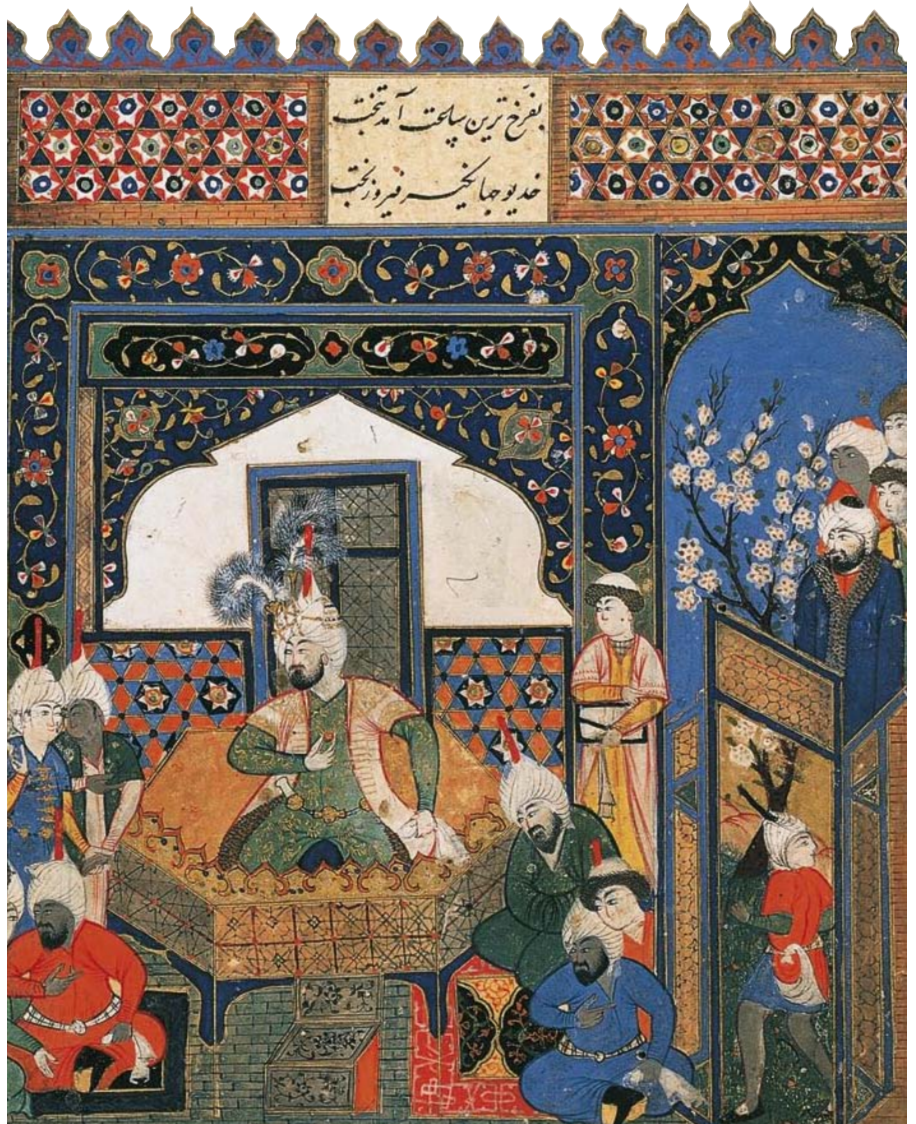 بفرخ ترین ساعت آمد بتخت
خدیو جهانگیر فیروزبخت